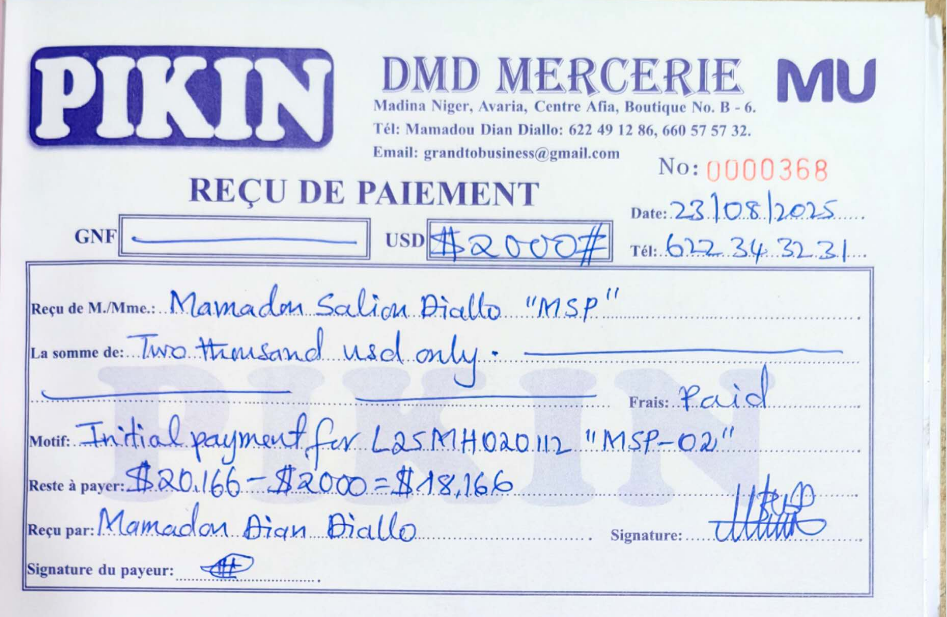 PIKIN
DMD MERCERIE
MU
Madina Niger, Avaria, Centre Afia, Boutique No. B - 6.
Tél: Mamadou Dian Diallo: 622 49 12 86, 660 57 57 32.
Email: grandtobusiness@gmail.com
No: 0000368
REÇU DE PAIEMENT
Date: 23/08/2025
GNF
USD #$2000#
Tél: 622 34 32 31
Reçu de M./Mme.: Mamadou Saliou Diallo "MSP"
La somme de: Two thousand usd only.
Frais: Paid
Motif: Initial payment for L25MH020112 "MSP-02"
Reste à payer: $20.166 - $2000 = $18,166
Reçu par: Mamadou Dian Diallo
Signature:
Signature du payeur:
PIKIN